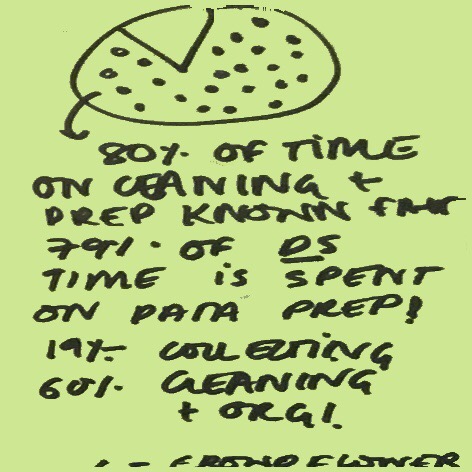 80% OF TIME
ON CEANING +
PREP KNOWN FACT
79% OF DS
TIME IS SPENT
ON DATA PREP!
19% COLLECTING
60% CLEANING
+ ORG!
- CROWDFLOWER